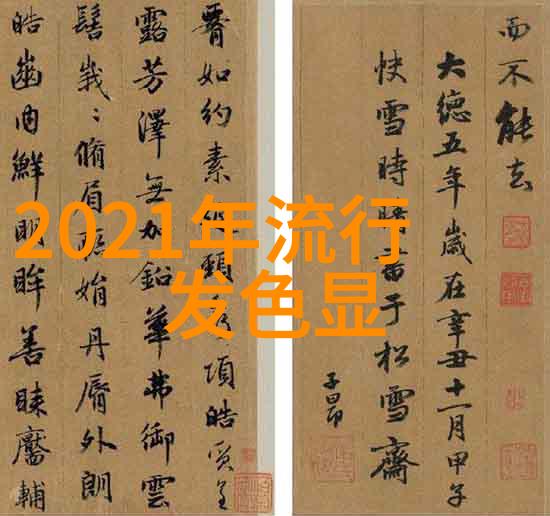 2021年流行
发色显
而不能去
大德五年歲在辛丑十一月甲子
快雪時晴書于松雪齋
子昂
腰如約素頸項皓質呈
露芳澤無加鉛華弗御雲
髻峩〻脩眉聯娟丹脣外朗
皓齒内鮮明眸善睞靨輔